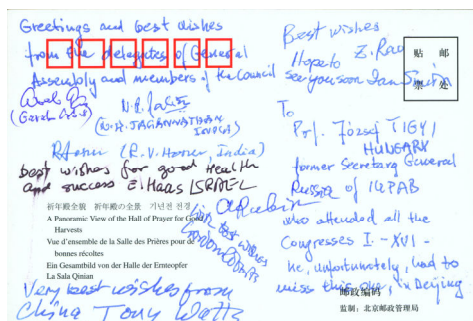 Greetings and best wishes
from the delegates of General
Assembly and members of the Council
N. R. JAGANNATHAN
INDIA)
(R. V. Hosur, India)
best wishes for good health
and success E. Haas ISRAEL
祈年殿全貌 祈年殿の全景 기년전 전경
A Panoramic View of the Hall of Prayer for Good
Harvests
Vue d'ensemble de la Salle des Prières pour de
bonnes récoltes
Ein Gesamtbild von der Halle der Ernteopfer
La Sala Qinian
Very best wishes from
China Tony Watts
best wishes
Best wishes
Z. Rao
Hope to
see you soon
贴 邮
票 处
To
Prof. József TIGYI
HUNGARY
former Secretary General
of IUPAB
who attended all the
Congresses I. - XVI -
he, unfortunately, had to
miss this one, in Beijing
邮政编码
监制:北京邮政管理局